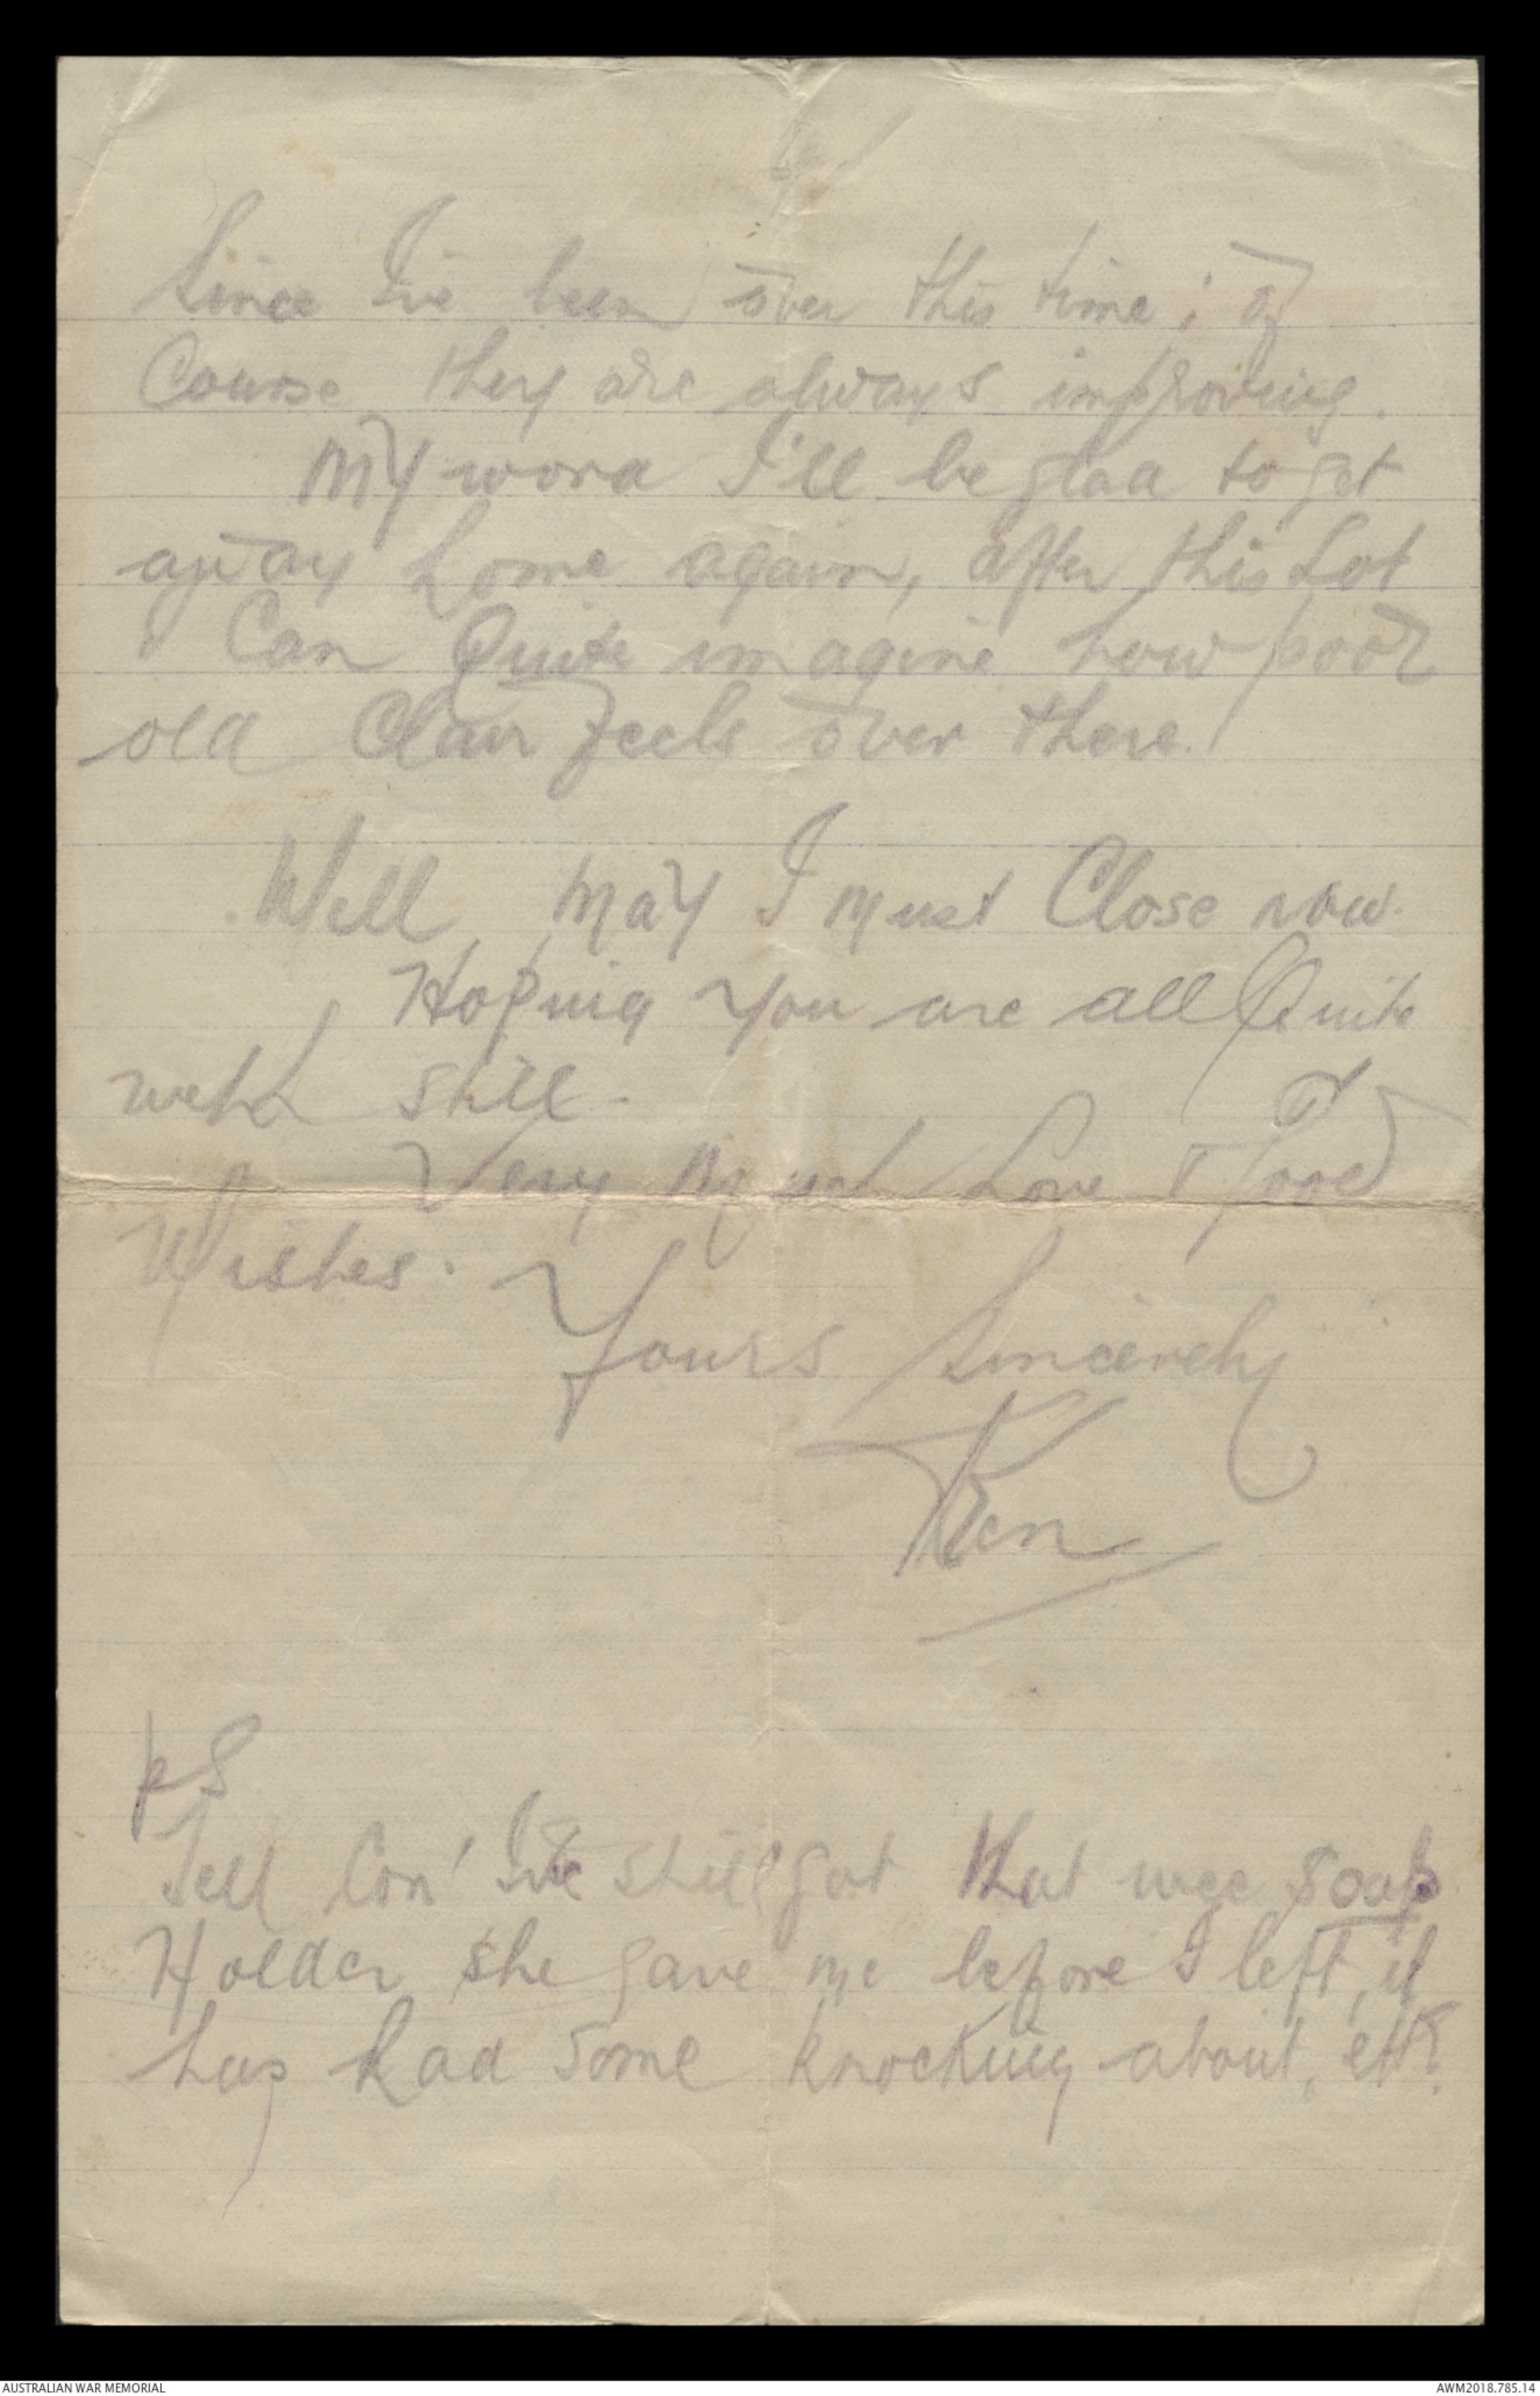 Since I've been over this time; of
Course they are always improving.
My word I'll be glad to get
away home again, after this Lot
Can Quite imagine how poor
old Clair feels over there.
Well, May I must Close now.
Hoping you are all Quite
well still.
Very Much Love & Good
Wishes.
Yours Sincerely
Ken
PS
Tell Con' I've still got that wee soap
Holder she gave me before I left, it
has had some knocking about, eh?.
AUSTRALIAN WAR MEMORIAL
AWM2018.785.14